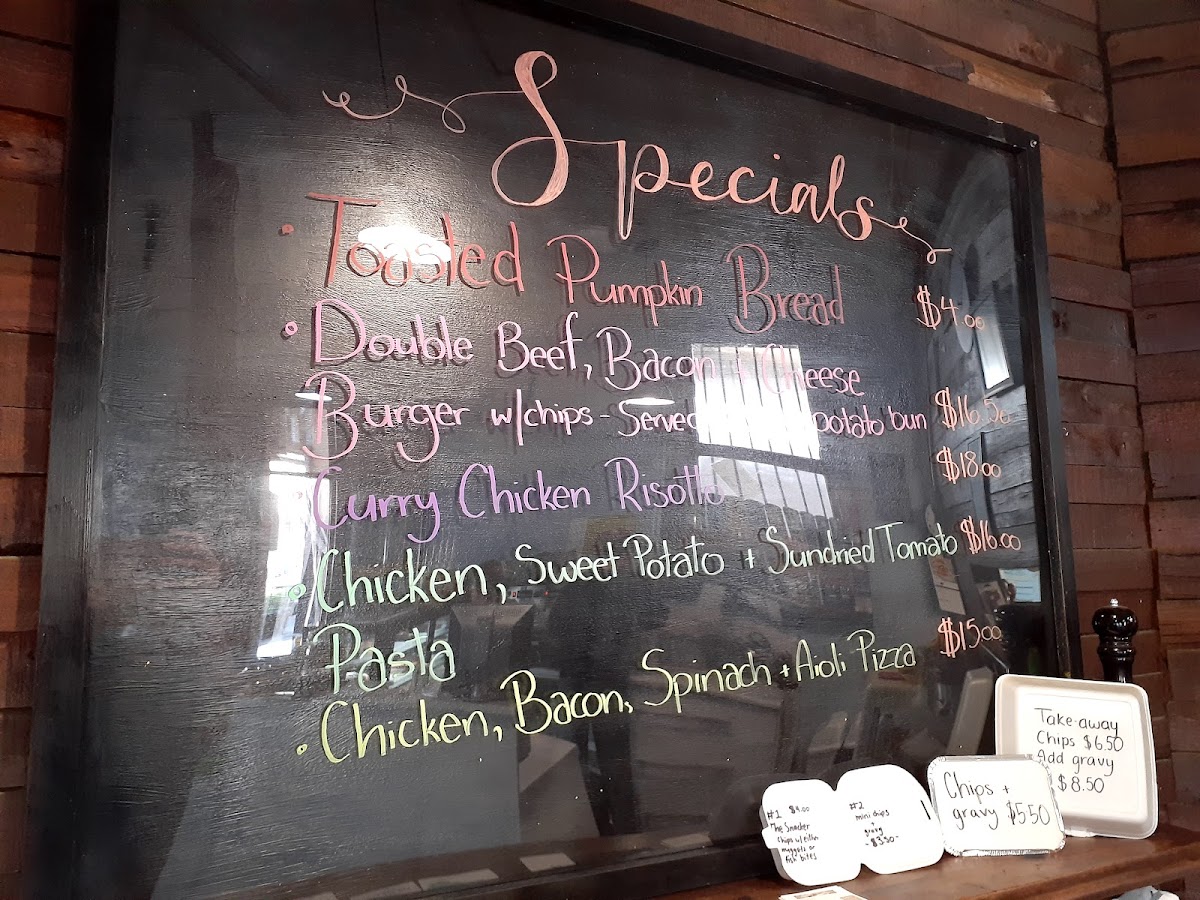 Specials
• Toasted Pumpkin Bread $4.00
• Double Beef, Bacon + Cheese
Burger w/chips - Served potato bun $16.50
Curry Chicken Risotto $18.00
• Chicken, Sweet Potato + Sundried Tomato $16.00
Pasta
• Chicken, Bacon, Spinach + Aioli Pizza $15.00
Take-away
Chips $6.50
Add gravy
$8.50
Chips +
gravy $5.50
#1 $9.00
The Snacker
Chips w/ either
nuggets or
fish bites
#2
mini chips
+
gravy
- $3.50 -